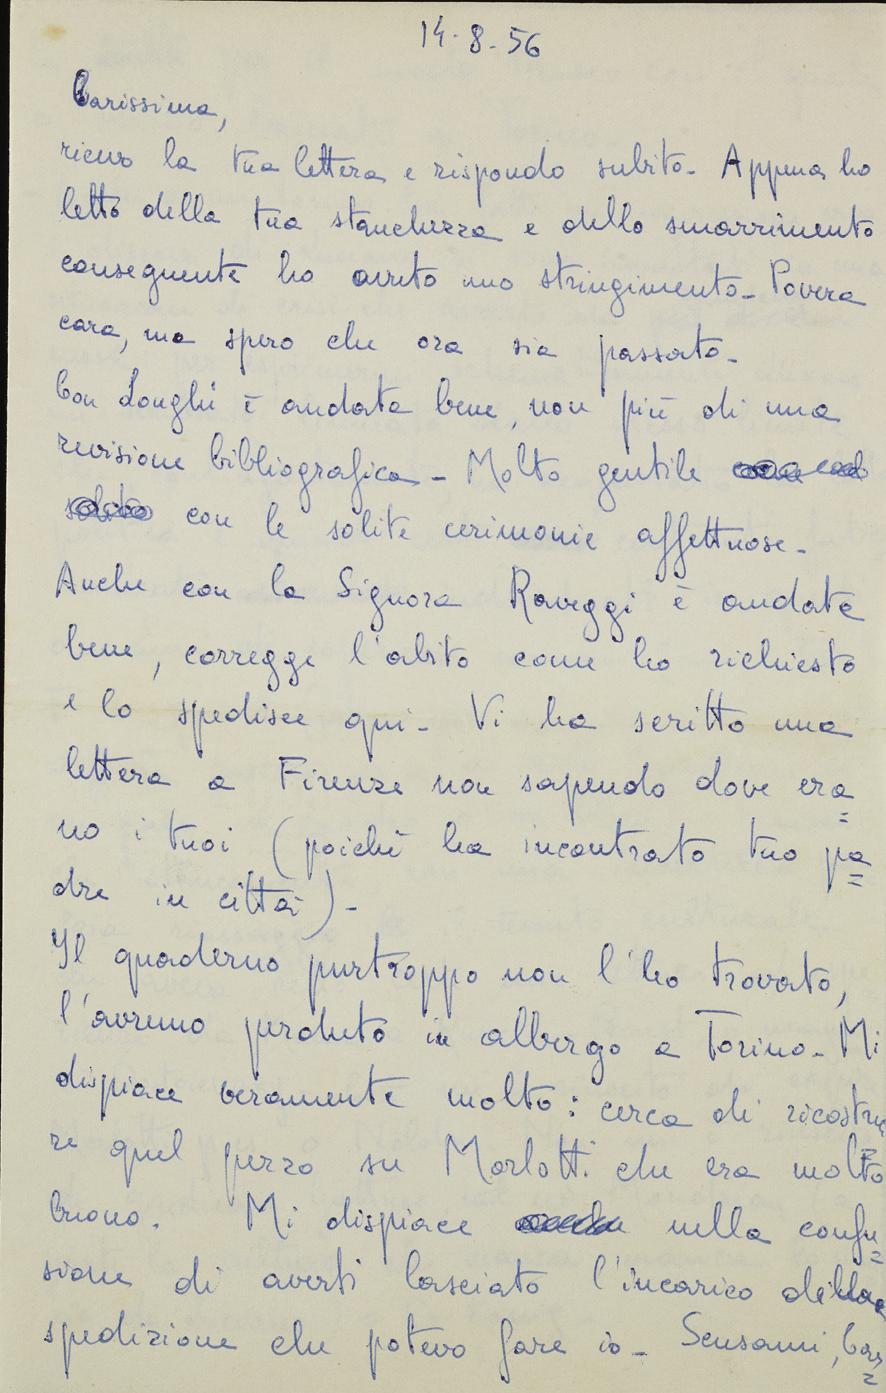 14.8.56
Carissima,
ricevo la tua lettera e rispondo subito. Appena ho
letto della tua stanchezza e dello smarrimento
conseguente ho avuto uno stringimento. Povera
cara, ma spero che ora sia passato.
Con Longhi è andata bene, non più di una
revisione bibliografica. Molto gentile
con le solite cerimonie affettuose.
Anche con la Signora Raveggi è andata
bene, corregge l'abito come ho richiesto
e lo spedisce qui. Vi ha scritto una
lettera a Firenze non sapendo dove era=
no i tuoi (poiché ha incontrato tuo pa=
dre in città).
Il quaderno purtroppo non l'ho trovato,
l'avremo perduto in albergo a Torino. Mi
dispiace veramente molto: cerca di ricostrui
re quel pezzo su Morlotti che era molto
buono. Mi dispiace nella confu=
sione di averti lasciato l'incarico della
spedizione che potevo fare io. Scusami, Car=